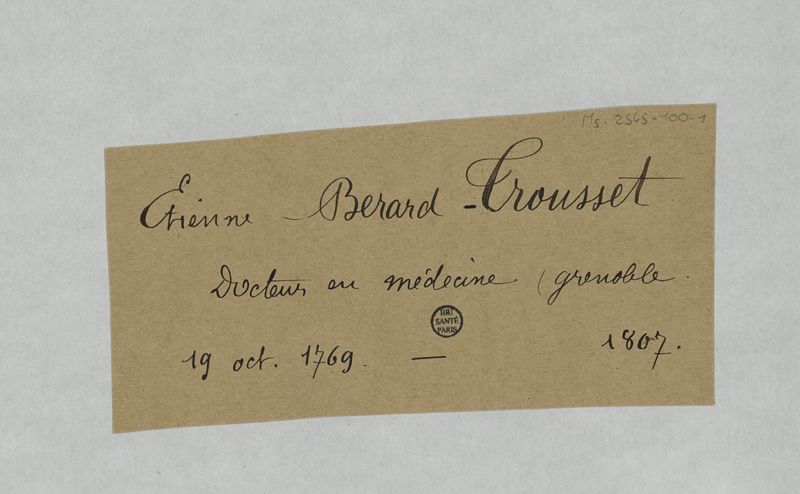 Ms. 2545-100-1
Etienne - Berard - Trousset
Docteur en médecine (grenoble.
BIU
SANTÉ
PARIS
19 oct. 1769. — 1807.